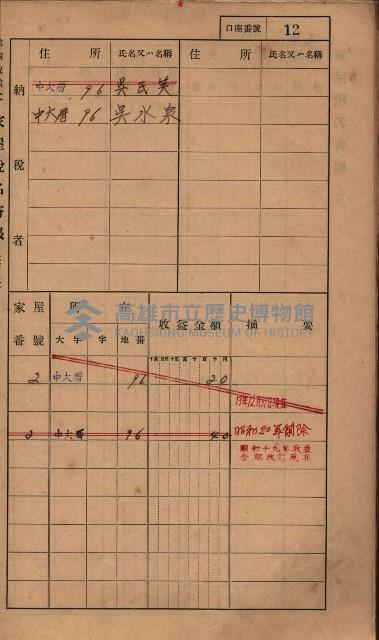 口座番號 12
住所 氏名又ハ名稱 住所 氏名又ハ名稱
納稅者
中大厝 96 吳氏笑
中大厝 96 吳水泉
家屋番號 所在 大字 字 地番 收益金額 摘要
高雄市立歷史博物館
KAOHSIUNG MUSEUM OF HISTORY
2 中大厝 96 20
19年12月31日現在
2 中大厝 96 40 昭和20年削除
昭和十九年收益
金額改訂現在
家屋稅名寄帳